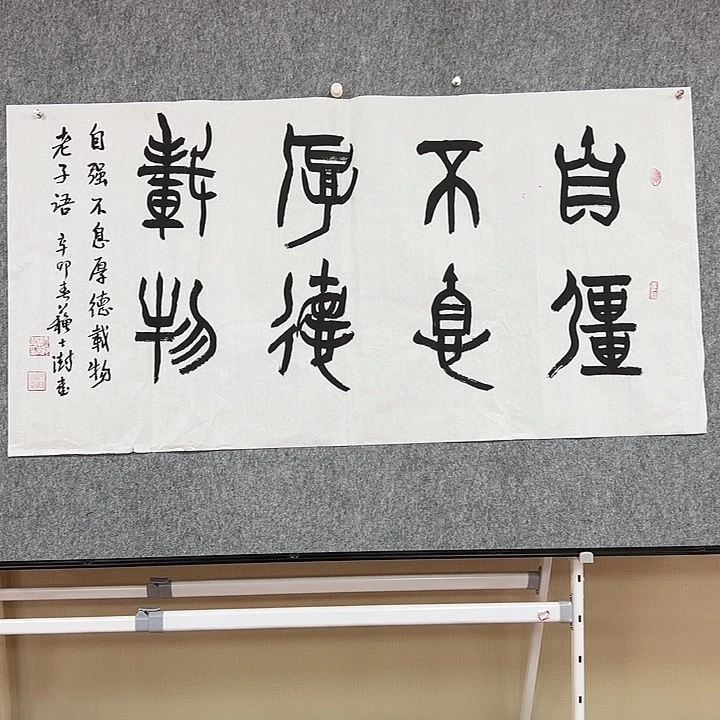 自彊
不息
厚德
載物
自强不息厚德載物
老子语 辛卯春蘇士澍书